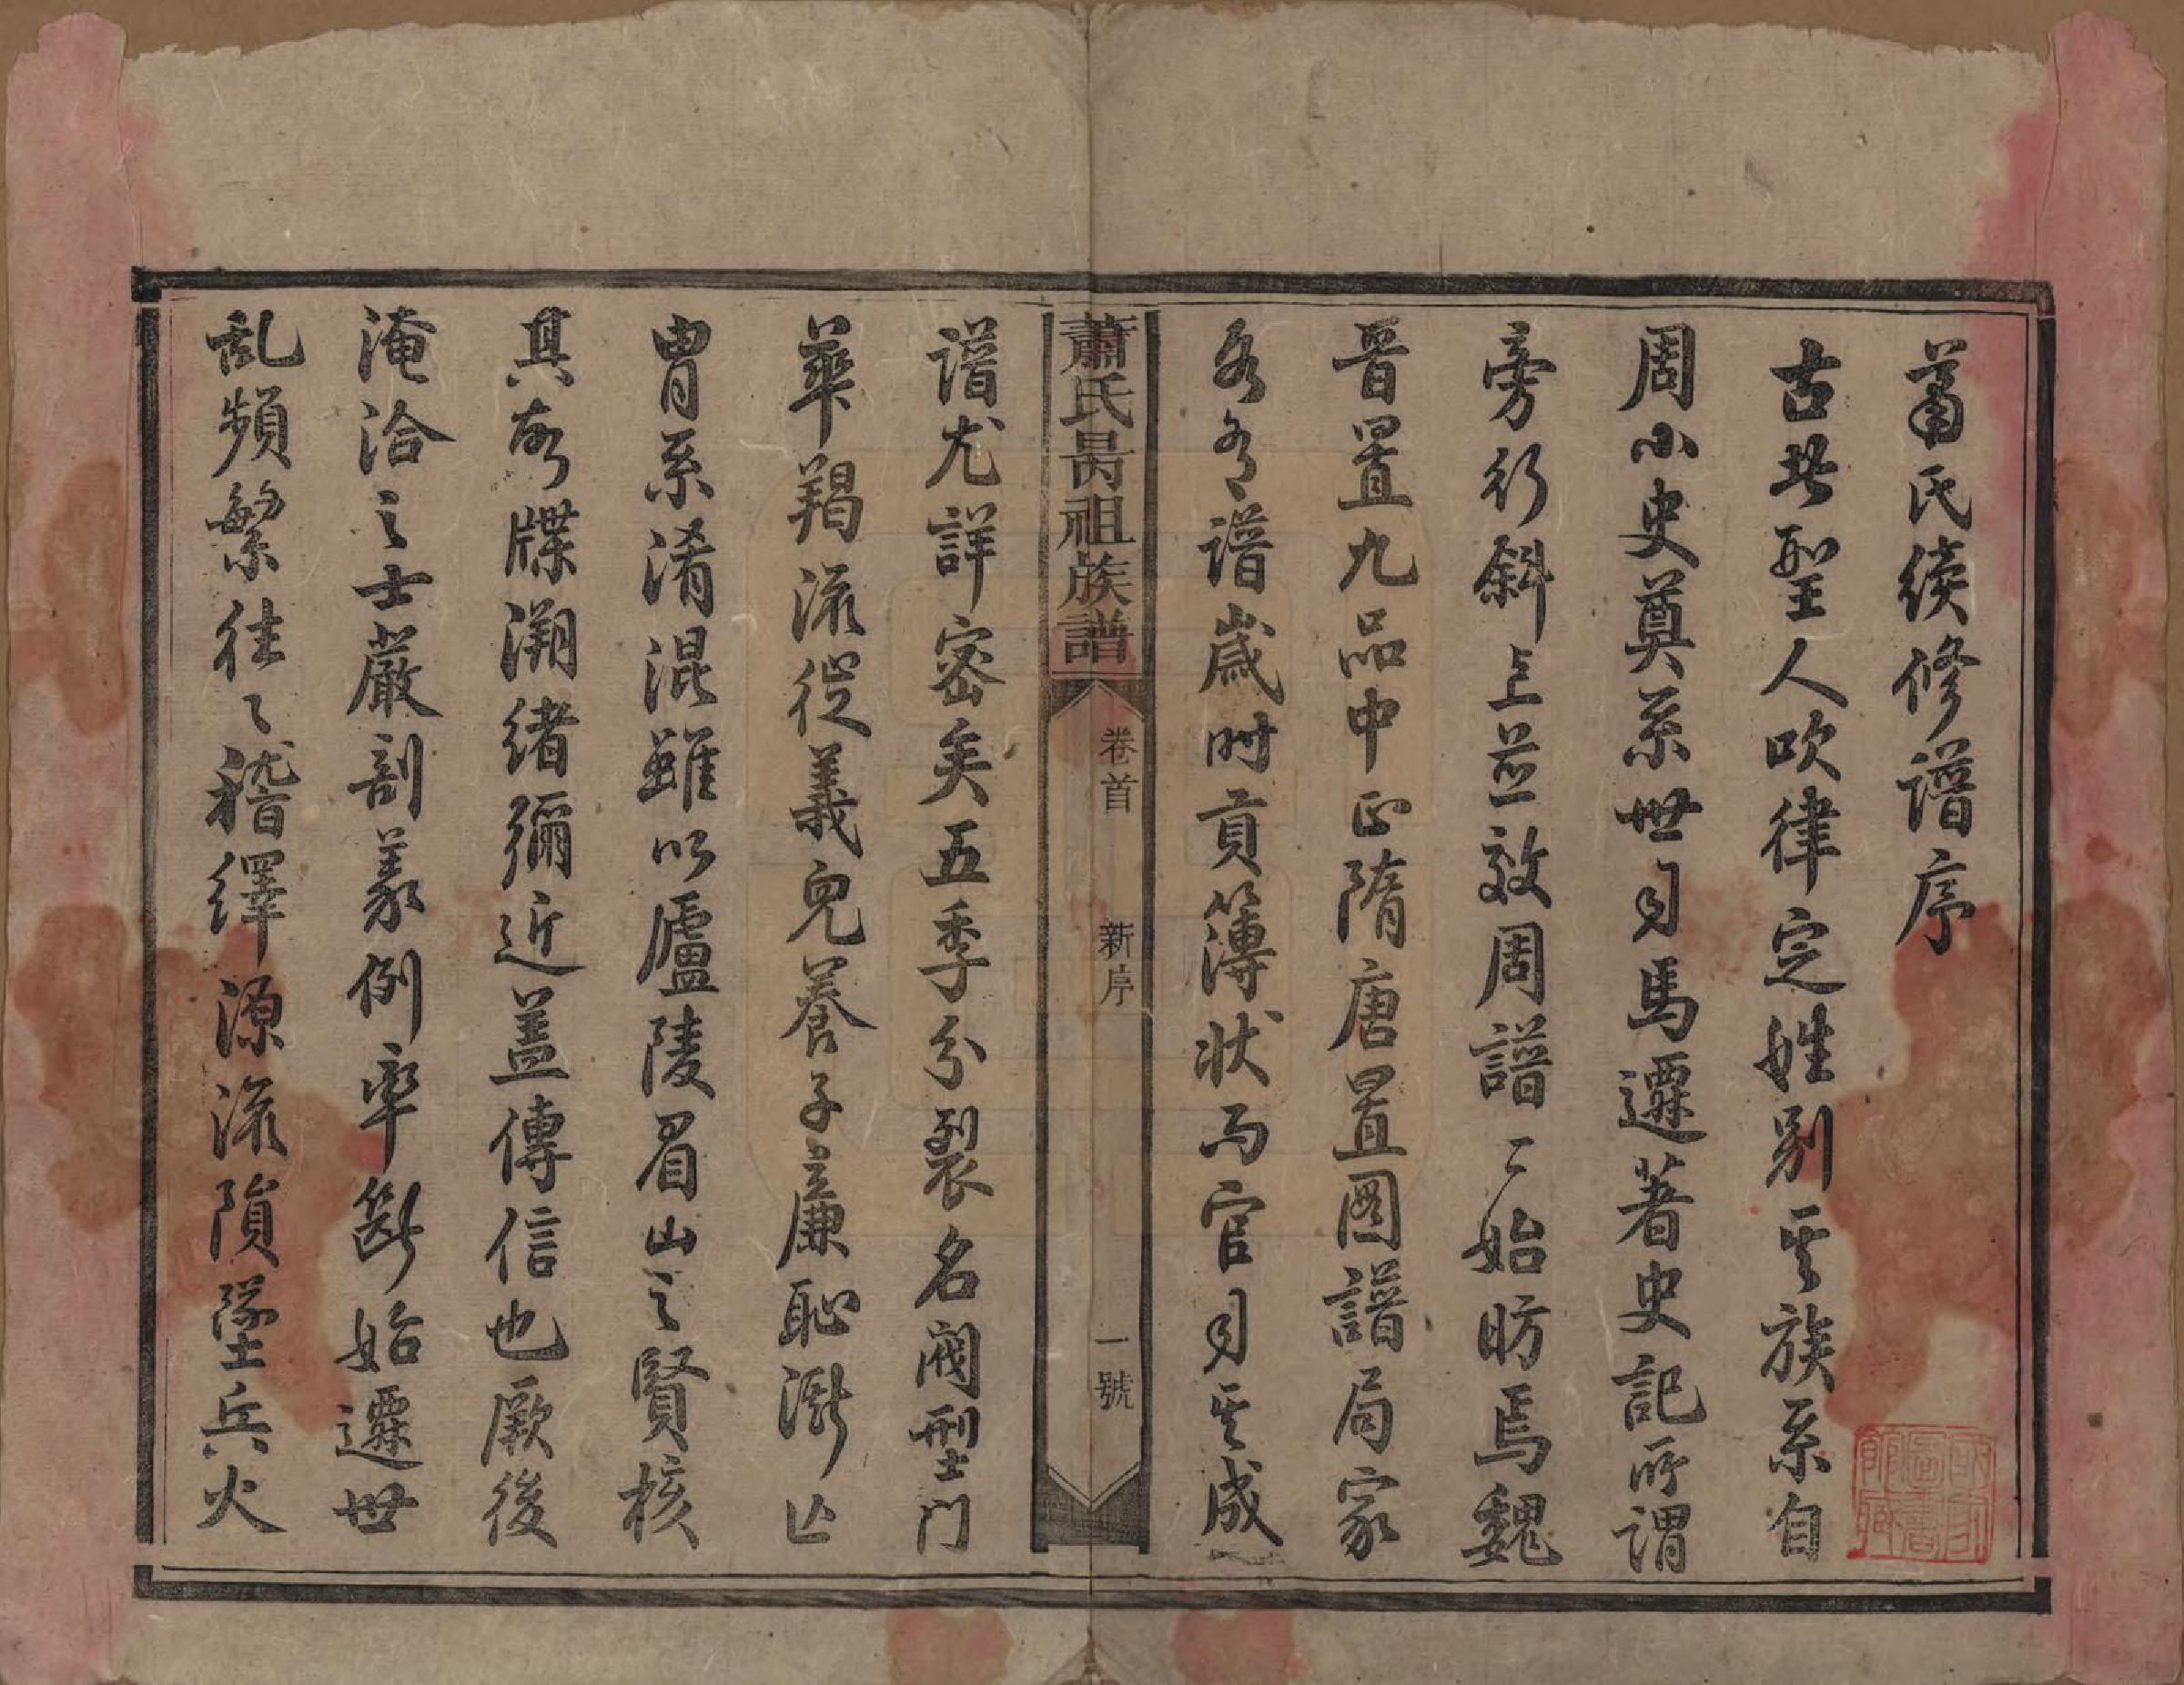 蕭氏續修譜序
古者聖人吹律定姓別其族系自
周小史奠系世司馬遷著史記所謂
旁行斜上並效周譜譜始昉焉魏
晉置九品中正隋唐置圖譜局家
各有譜歲時貢簿狀而官司其成
蕭氏昺祖族譜
卷首
新序
一號
譜尤詳密矣五季分裂名閥型門
華羯流從義兒養子廉恥澌亡
胄系淆混雖以廬陵眉山之賢核
其存牒溯緒彌近蓋傳信也厥後
淹洽之士嚴剖義例率斷始遷世
乱頻繁往々稽繹源流隕墜兵火